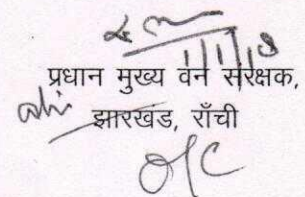 1/1/18
प्रधान मुख्य वन संरक्षक,
झारखंड, राँची
O/C